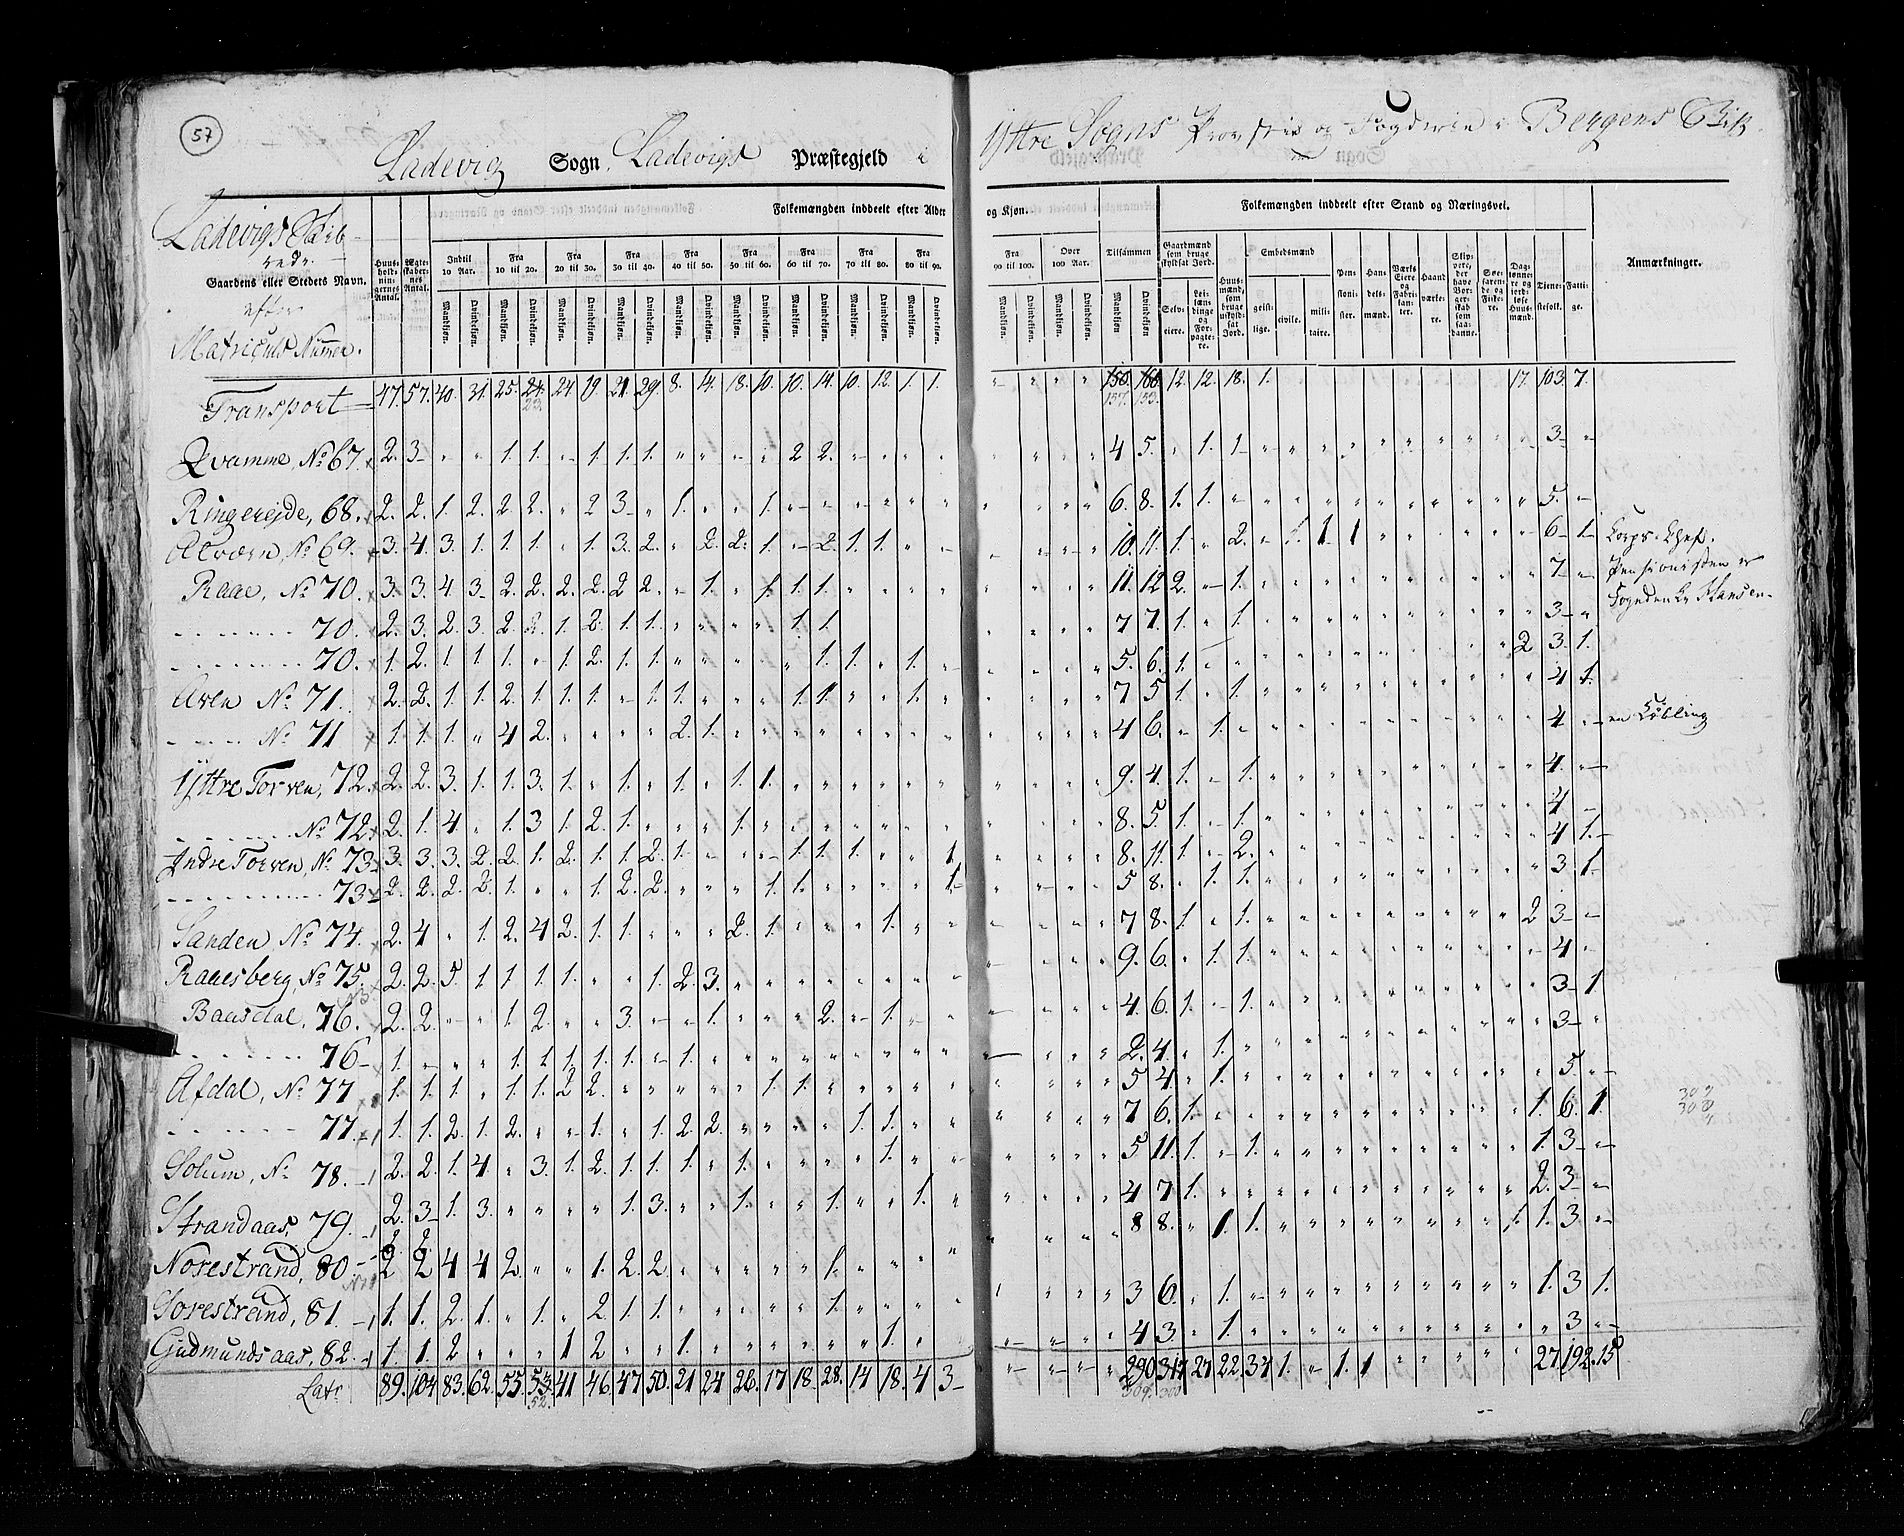 57
Ladevig Sogn, Ladevigs Præstegjeld i Yttre Sogns Provstie og Fogderie i Bergens Bisp
Ladevigs Skib-
rede.
Gaardens eller Stedets Navn.
efter
Matriculs Nummer.
Huus-holdningernes Antal.
Ægte-skabernes Antal.
Folkemængden inddeelt efter Alder og Kjøn.
Indtil 10 Aar. Fra 10 til 20. Fra 20 til 30. Fra 30 til 40. Fra 40 til 50. Fra 50 til 60. Fra 60 til 70. Fra 70 til 80. Fra 80 til 90. Fra 90 til 100. Over 100 Aar. Tilsammen
Mandkjøn. Qvindekjøn.
Folkemængden inddeelt efter Stand og Næringsvei.
Gaardmænd som bruge skyldsat Jord.
Selv-eiere.
Lei-lændinge og For-pagtere.
Huus-mænd, som bruge uskyldsat Jord.
Embedsmænd
geist-lige. civile. mili-taire.
Pen-sioni-ster.
Han-dels-mænd.
Værks Eiere og Fabri-kan-ter.
Haand-værke-re.
Søe-farende og Fiske-re.
Dag-lønnere og jord-løse Huus-mænd.
Tjene-stefolk.
Fatti-ge.
Anmærkninger.
Transport 47. 57. 40. 31. 25. 24. 24. 19. 21. 29. 8. 14. 18. 10. 10. 14. 10. 12. 1. 1. 156. 160. 12. 12. 18. 1. 17. 103. 7.
23. 157. 153.
Qvamme, No 67. 2. 3 1. 1. 1. 1. 1. 2 2. 4 5. 1. 1 3
Ringereide, 68. 2. 2. 1. 2. 2 2. 2 3 1. 1. 6. 8. 1. 1. 5.
Alværn, No 69. 3. 4. 3. 1. 1. 1. 1. 3. 2. 2. 2. 1. 2. 1. 1. 10. 11. 1. 2. 1. 1 1 6 1 Korps-Chef.
Raae, No 70. 3. 3. 4 3 2. 2. 2. 2. 2 2. 1. 1. 1. 1. 11. 12 2. 1. 7 Pensionisten er
Fogden Hr Hansen.
70. 2. 3. 2. 3. 2. 2. 1. 2. 1. 1. 1. 1 7 7. 1. 1. 3
70. 1. 2. 1. 1. 1. 1. 2. 1. 1. 1. 1. 1. 5. 6. 1. 2 3. 1.
Aven No 71. 2. 2. 1. 1. 2. 1. 1. 1. 1. 1. 1. 1. 1. 7 5 1. 1. 4 1.
No 71 1. 1. 1. 4 2. 2. 1. 4 6. 1. 4
Yttre Torven, 72. 2. 2. 3. 1. 1. 3. 1. 1. 1. 1. 1. 9. 4. 1. 1. 4.
No 72. 2. 1. 4 1. 3 1. 2. 1. 1. 8. 5. 1. 1. 4
Indre Torven, No 73. 3. 3. 3. 2. 2. 1. 2. 1. 1. 2. 1. 1. 1. 1. 1. 8. 11. 1. 2. 4 1.
73 2. 2. 2. 2. 1. 1. 2. 2. 1. 1. 1 5 8. 1. 1. 3 1
Sanden No 74. 2. 4 1. 2. 4 2. 1. 1. 2. 1. 1. 7 8. 1. 1. 2 3
Raaesberg, No 75. 2. 2. 5. 1 1 1 1. 1. 2. 3. 9. 6. 1. 1. 4
Baasdal, 76. 2. 2. 1. 2. 3. 1. 2. 1. 4. 6. 1. 1. 3 1
76 1. 1 1 1 1. 1. 1. 2. 4. 1. 3
Afdal, No 77 1. 1. 1. 1. 1. 2 2. 1. 1. 5 4 1. 5.
77. 1. 1. 2. 1. 2. 1. 1. 2 2. 1. 1. 7 6. 1. 1. 6. 1.
Solum, No 78. 2. 2. 1. 4 3. 1. 2. 1. 1. 1. 1. 1. 5 11. 1. 1. 1. 3
Strandaas, 79. 2. 3 1. 3. 1. 3. 1. 1. 1. 4 7 1. 2. 3
Norestrand, 80 2 2 4 4 2. 1. 2. 2. 1. 8 8. 1 1. 1. 3
Sorestrand, 81. 1. 1. 2. 1. 1. 2 1. 1. 1. 3 6. 1. 1. 3 1.
Gudmundsaas, 82. 1. 1. 2 1 2 1. 1. 4 3. 1. 3
Late 89. 104 83. 62. 55. 53. 41 46. 47 50. 21 24 26. 17 18. 28. 14 18. 4 3 290 317 27 22. 34 1. 1. 1 27. 192. 15
52. 309. 300